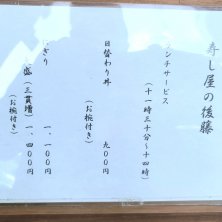 寿し屋の後藤
ンチサービス
(十一時三十分〜十四時)
日替わり丼 九〇〇円
(お椀付き)
ぎり 一、一〇〇円
盛(三貫増)一、四〇〇円
(お椀付き)